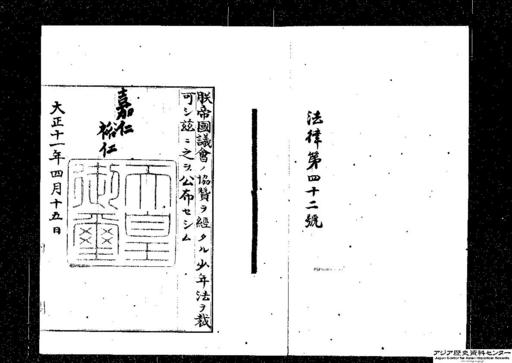 法律第四十二號
朕帝國議會ノ協贊ヲ經タル少年法ヲ裁
可シ茲ニ之ヲ公布セシム
嘉仁
裕仁
天皇
御璽
大正十一年四月十五日
アジア歴史資料センター
Japan Center for Asian Historical Records